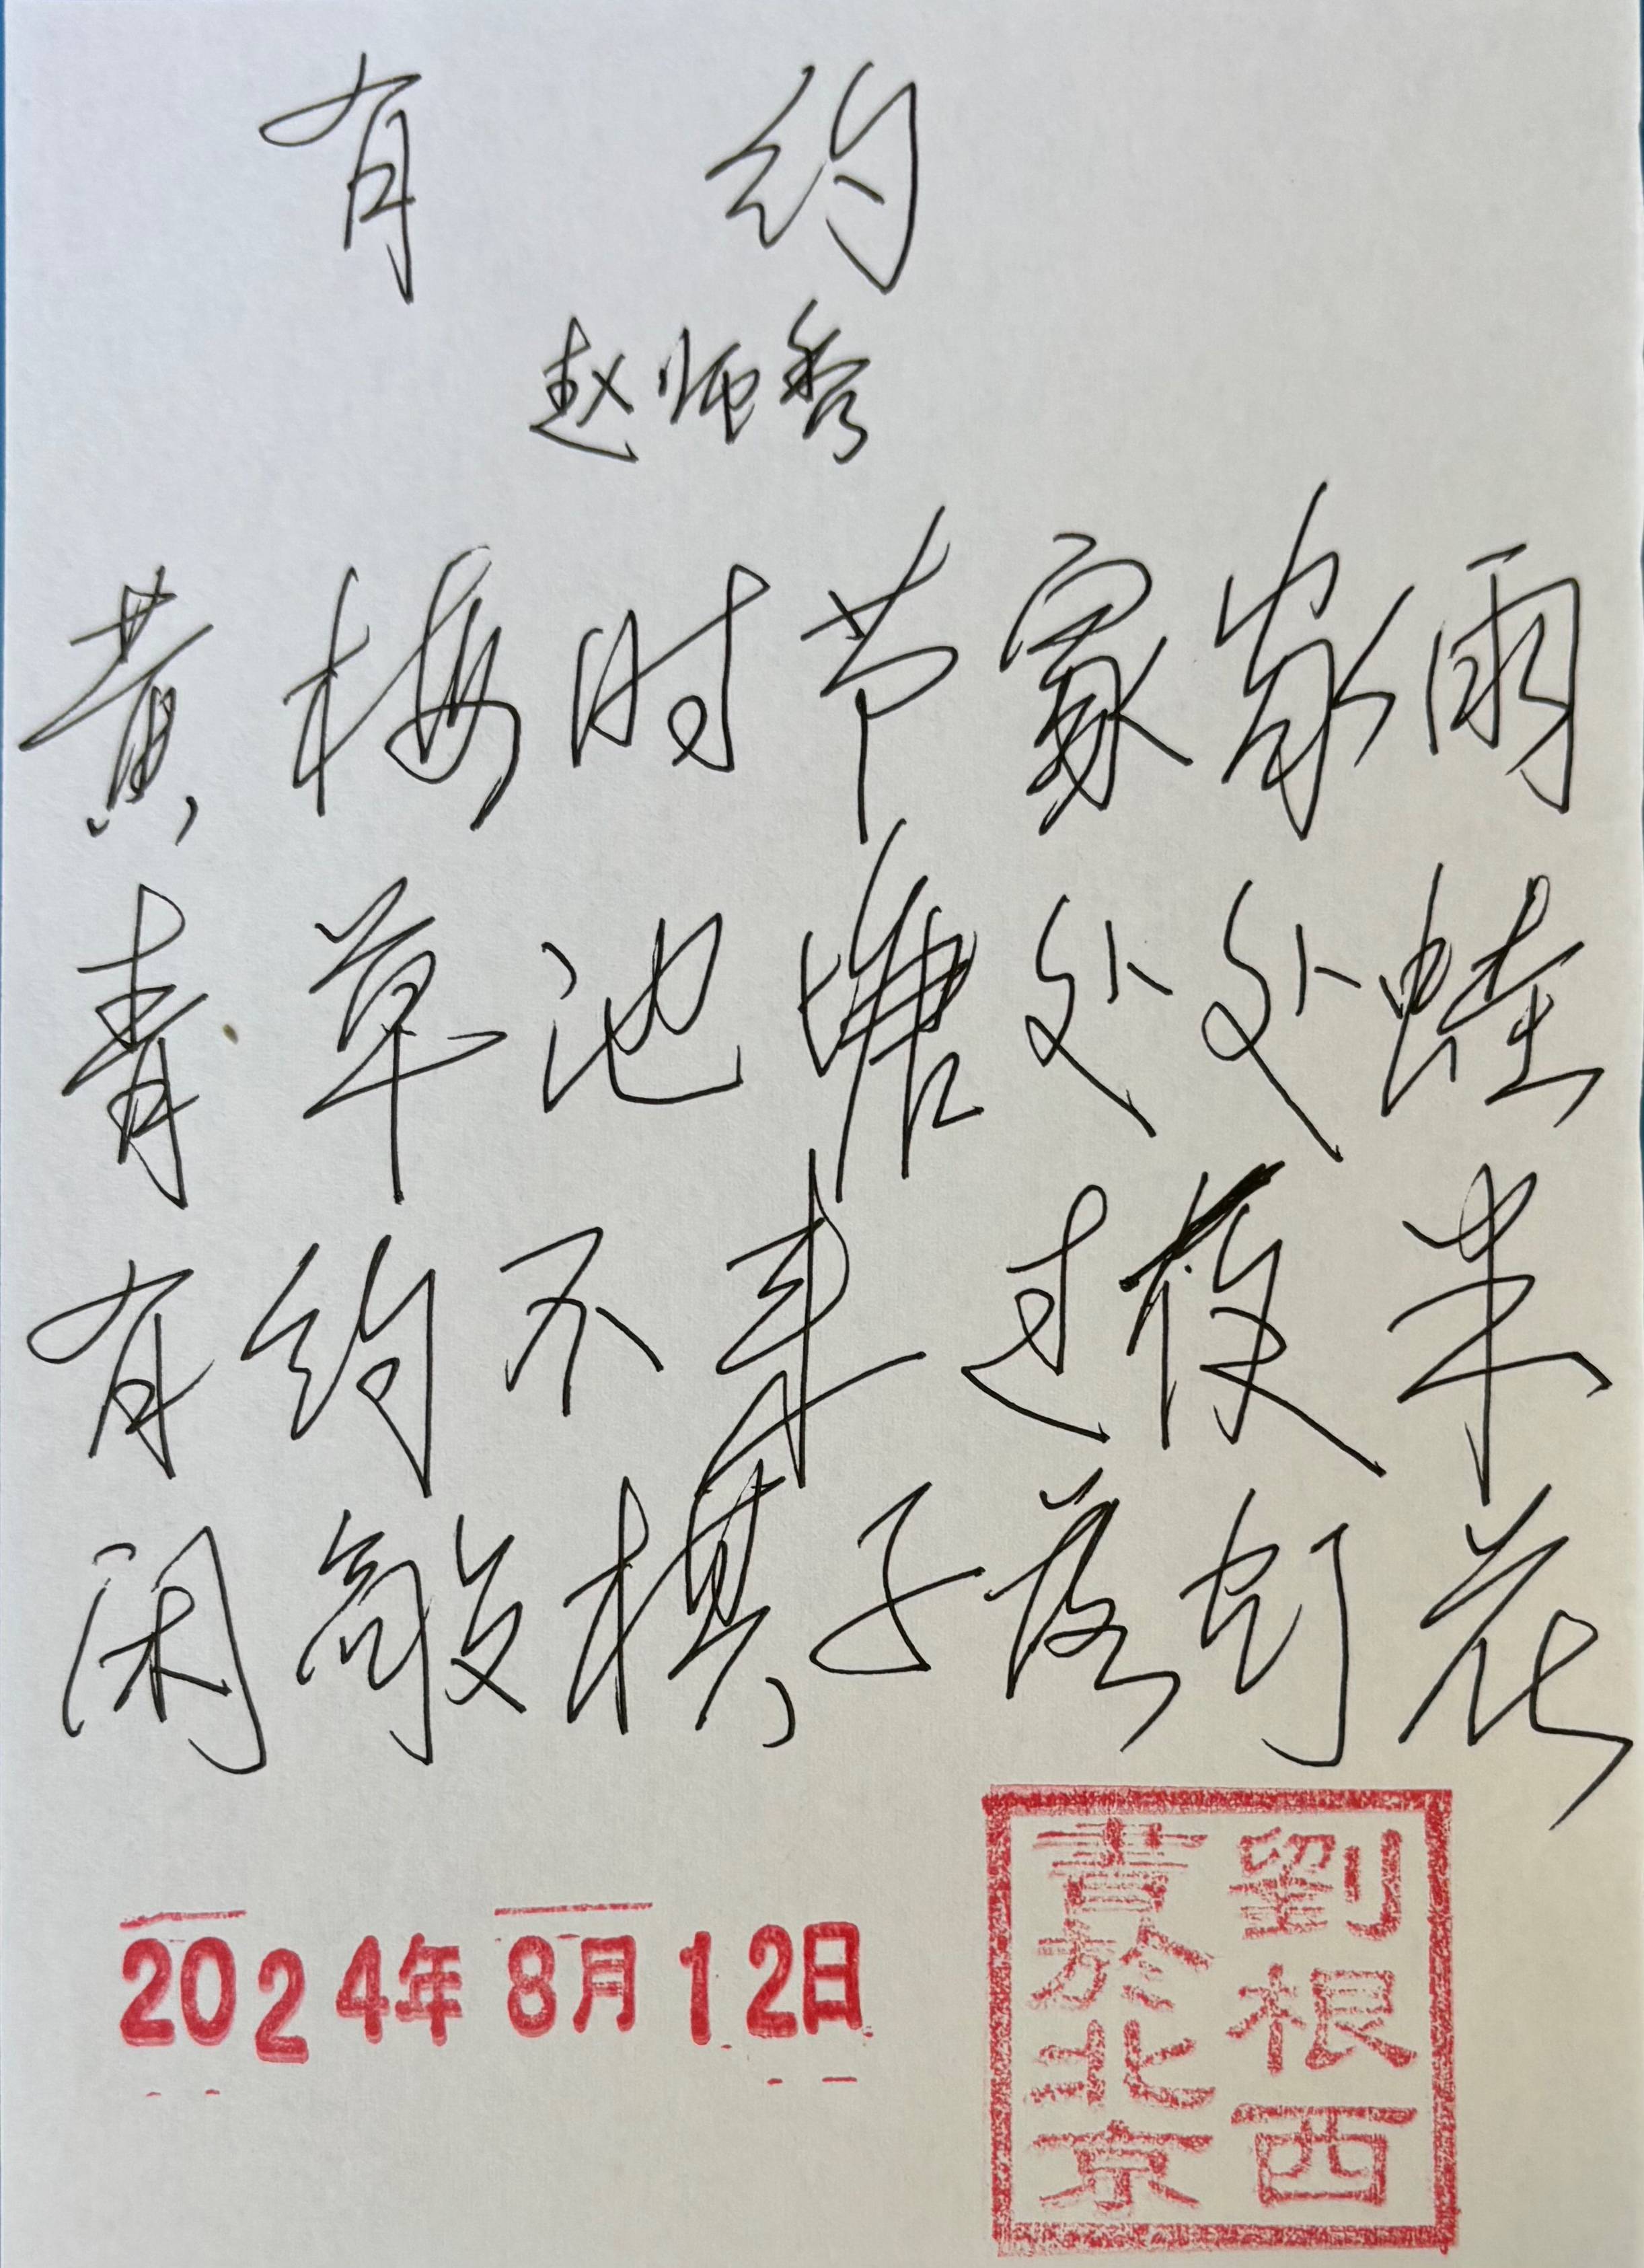 有约
赵师秀
黄梅时节家家雨
青草池塘处处蛙
有约不来过夜半
闲敲棋子落灯花
2024年8月12日
劉根西
書於北京